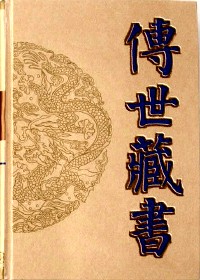 傳世藏書